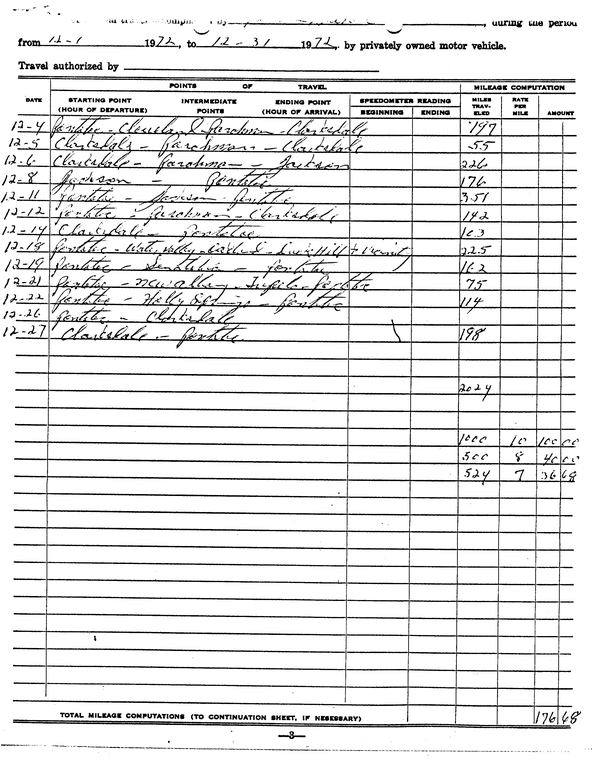 , during the period
from 12-1 1972, to 12-31 1972, by privately owned motor vehicle.
Travel authorized by
POINTS OF TRAVEL MILEAGE COMPUTATION
DATE STARTING POINT (HOUR OF DEPARTURE) INTERMEDIATE POINTS ENDING POINT (HOUR OF ARRIVAL) SPEEDOMETER READING BEGINNING ENDING MILES TRAVELED RATE PER MILE AMOUNT
12-4 Pontotoc - Cleveland & Parchman - Clarksdale 197
12-5 Clarksdale - Parchman - Clarksdale 55
12-6 Clarksdale - Parchman - Jackson 226
12-8 Jackson - Pontotoc 176
12-11 Pontotoc - Jackson - Pontotoc 351
12-12 Pontotoc - Parchman - Clarksdale 142
12-14 Clarksdale - Pontotoc 103
12-18 Pontotoc - Water Valley - - Duck Hill + Vicinity 225
12-19 Pontotoc - Senatobia - Pontotoc 162
12-21 Pontotoc - New Albany - Tupelo - Pontotoc 75
12-22 Pontotoc - Holly Springs - Pontotoc 114
12-26 Pontotoc - Clarksdale
12-27 Clarksdale - Pontotoc 198
2024
1000 10 100 00
500 8 40 00
524 7 36 68
TOTAL MILEAGE COMPUTATIONS (TO CONTINUATION SHEET, IF NECESSARY) 176 68
—3—